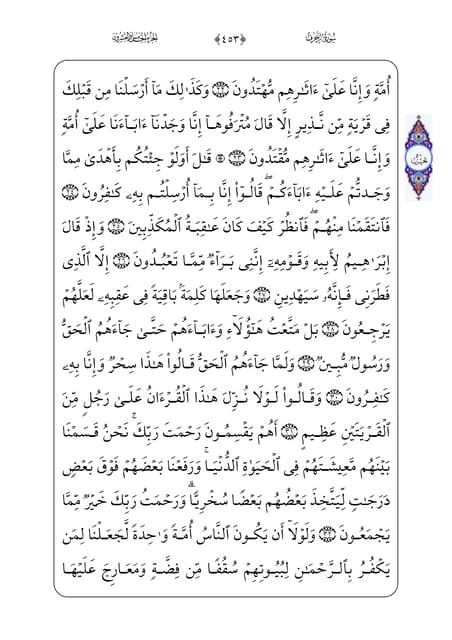 سُورَةُ الزُّخْرُفِ ﴿٤٥٣﴾ الجُزْءُ الخَامِسُ وَالعِشْرُونَ
أُمَّةٍ وَإِنَّا عَلَىٰٓ ءَاثَٰرِهِم مُّهْتَدُونَ ٢٢ وَكَذَٰلِكَ مَآ أَرْسَلْنَا مِن قَبْلِكَ
فِى قَرْيَةٍ مِّن نَّذِيرٍ إِلَّا قَالَ مُتْرَفُوهَآ إِنَّا وَجَدْنَآ ءَابَآءَنَا عَلَىٰٓ أُمَّةٍ
وَإِنَّا عَلَىٰٓ ءَاثَٰرِهِم مُّقْتَدُونَ ٢٣ ۞ قَٰلَ أَوَلَوْ جِئْتُكُم بِأَهْدَىٰ مِمَّا
وَجَدتُّمْ عَلَيْهِ ءَابَآءَكُمْ ۖ قَالُوٓا۟ إِنَّا بِمَآ أُرْسِلْتُم بِهِۦ كَٰفِرُونَ ٢٤
فَٱنتَقَمْنَا مِنْهُمْ ۖ فَٱنظُرْ كَيْفَ كَانَ عَٰقِبَةُ ٱلْمُكَذِّبِينَ ٢٥ وَإِذْ قَالَ
إِبْرَٰهِيمُ لِأَبِيهِ وَقَوْمِهِۦٓ إِنَّنِى بَرَآءٌ مِّمَّا تَعْبُدُونَ ٢٦ إِلَّا ٱلَّذِى
فَطَرَنِى فَإِنَّهُۥ سَيَهْدِينِ ٢٧ وَجَعَلَهَا كَلِمَةًۢ بَاقِيَةً فِى عَقِبِهِۦ لَعَلَّهُمْ
يَرْجِعُونَ ٢٨ بَلْ مَتَّعْتُ هَٰٓؤُلَآءِ وَءَابَآءَهُمْ حَتَّىٰ جَآءَهُمُ ٱلْحَقُّ
وَرَسُولٌ مُّبِينٌ ٢٩ وَلَمَّا جَآءَهُمُ ٱلْحَقُّ قَالُوا۟ هَٰذَا سِحْرٌ وَإِنَّا بِهِۦ
كَٰفِرُونَ ٣٠ وَقَالُوا۟ لَوْلَا نُزِّلَ هَٰذَا ٱلْقُرْءَانُ عَلَىٰ رَجُلٍ مِّنَ
ٱلْقَرْيَتَيْنِ عَظِيمٍ ٣١ أَهُمْ يَقْسِمُونَ رَحْمَتَ رَبِّكَ ۚ نَحْنُ قَسَمْنَا
بَيْنَهُم مَّعِيشَتَهُمْ فِى ٱلْحَيَوٰةِ ٱلدُّنْيَا ۚ وَرَفَعْنَا بَعْضَهُمْ فَوْقَ بَعْضٍ
دَرَجَٰتٍ لِّيَتَّخِذَ بَعْضُهُم بَعْضًا سُخْرِيًّا ۗ وَرَحْمَتُ رَبِّكَ خَيْرٌ مِّمَّا
يَجْمَعُونَ ٣٢ وَلَوْلَآ أَن يَكُونَ ٱلنَّاسُ أُمَّةً وَٰحِدَةً لَّجَعَلْنَا لِمَن
يَكْفُرُ بِٱلرَّحْمَٰنِ لِبُيُوتِهِمْ سُقُفًا مِّن فِضَّةٍ وَمَعَارِجَ عَلَيْهَا